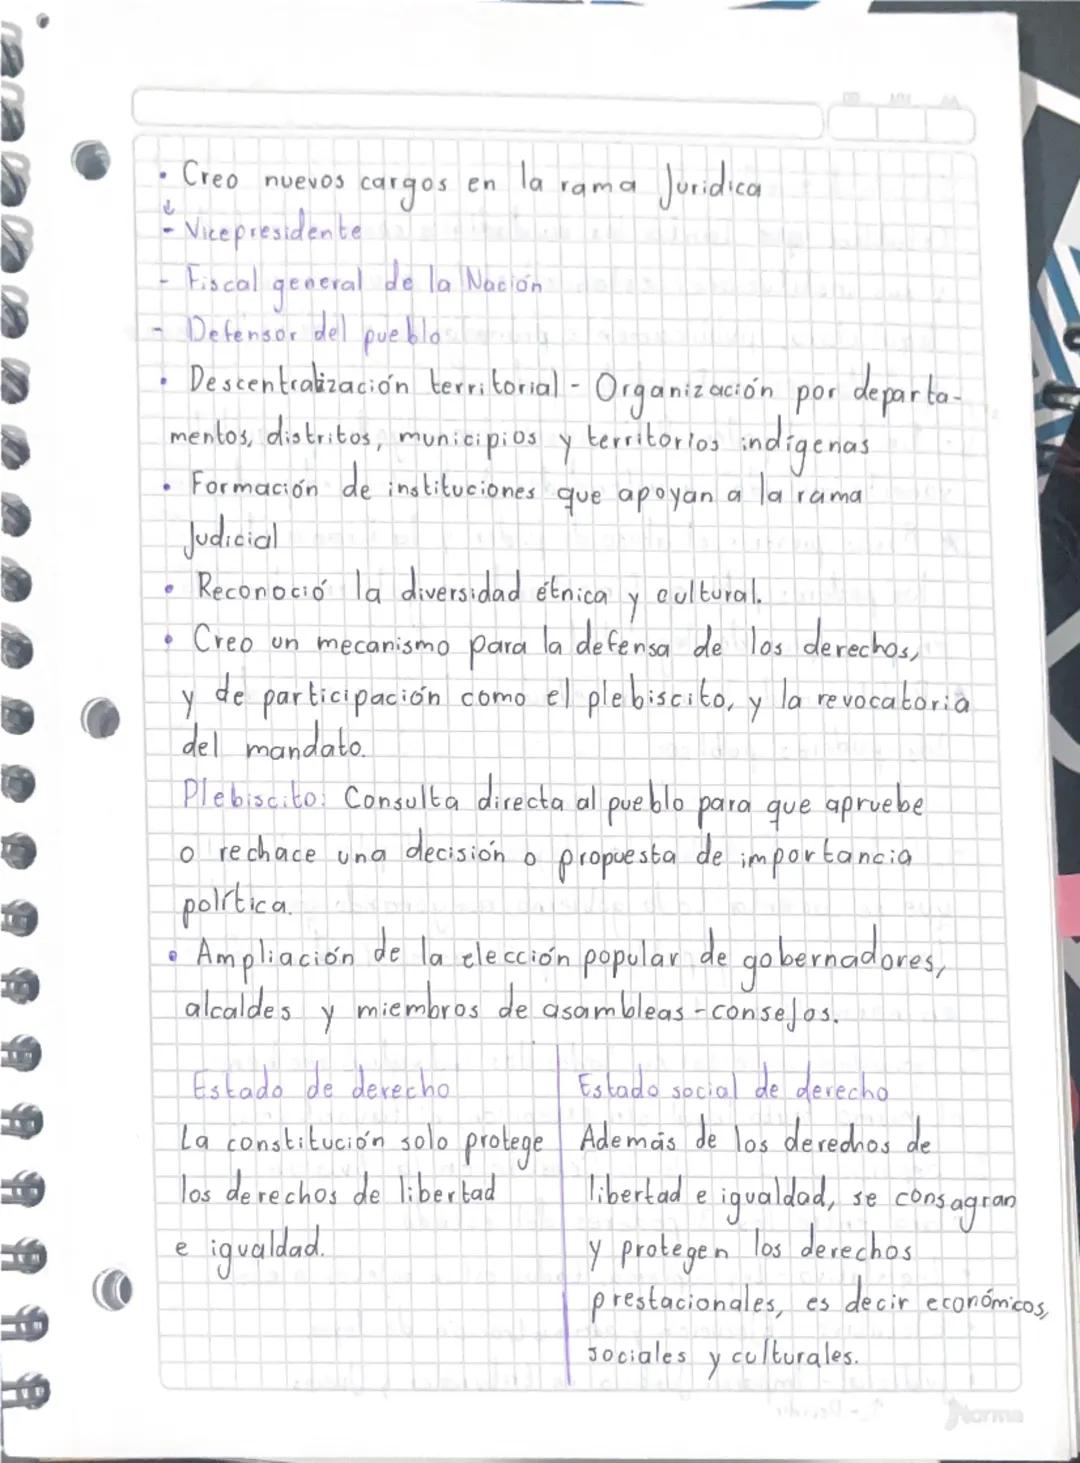 • Creo nuevos cargos en la rama Juridica
↓
- Vicepresidente
- Fiscal general de la Nación
- Defensor del pueblo
• Descentralización territorial - Organización por departa-
mentos, distritos, municipios y territorios indígenas
• Formación de instituciones que apoyan a la rama
Judicial
• Reconoció la diversidad étnica y cultural.
• Creo un mecanismo para la defensa de los derechos,
y de participación como el plebiscito, y la revocatoria
del mandato.
Plebiscito: Consulta directa al pueblo para que apruebe
o rechace una decisión o propuesta de importancia
política.
• Ampliación de la elección popular de gobernadores,
alcaldes y miembros de asambleas-consejos.
Estado de derecho
La constitución solo protege
los derechos de libertad
e igualdad.
Estado social de derecho
Además de los derechos de
libertad e igualdad, se consagran
y protegen los derechos
prestacionales, es decir económicos,
sociales y culturales.
Norma